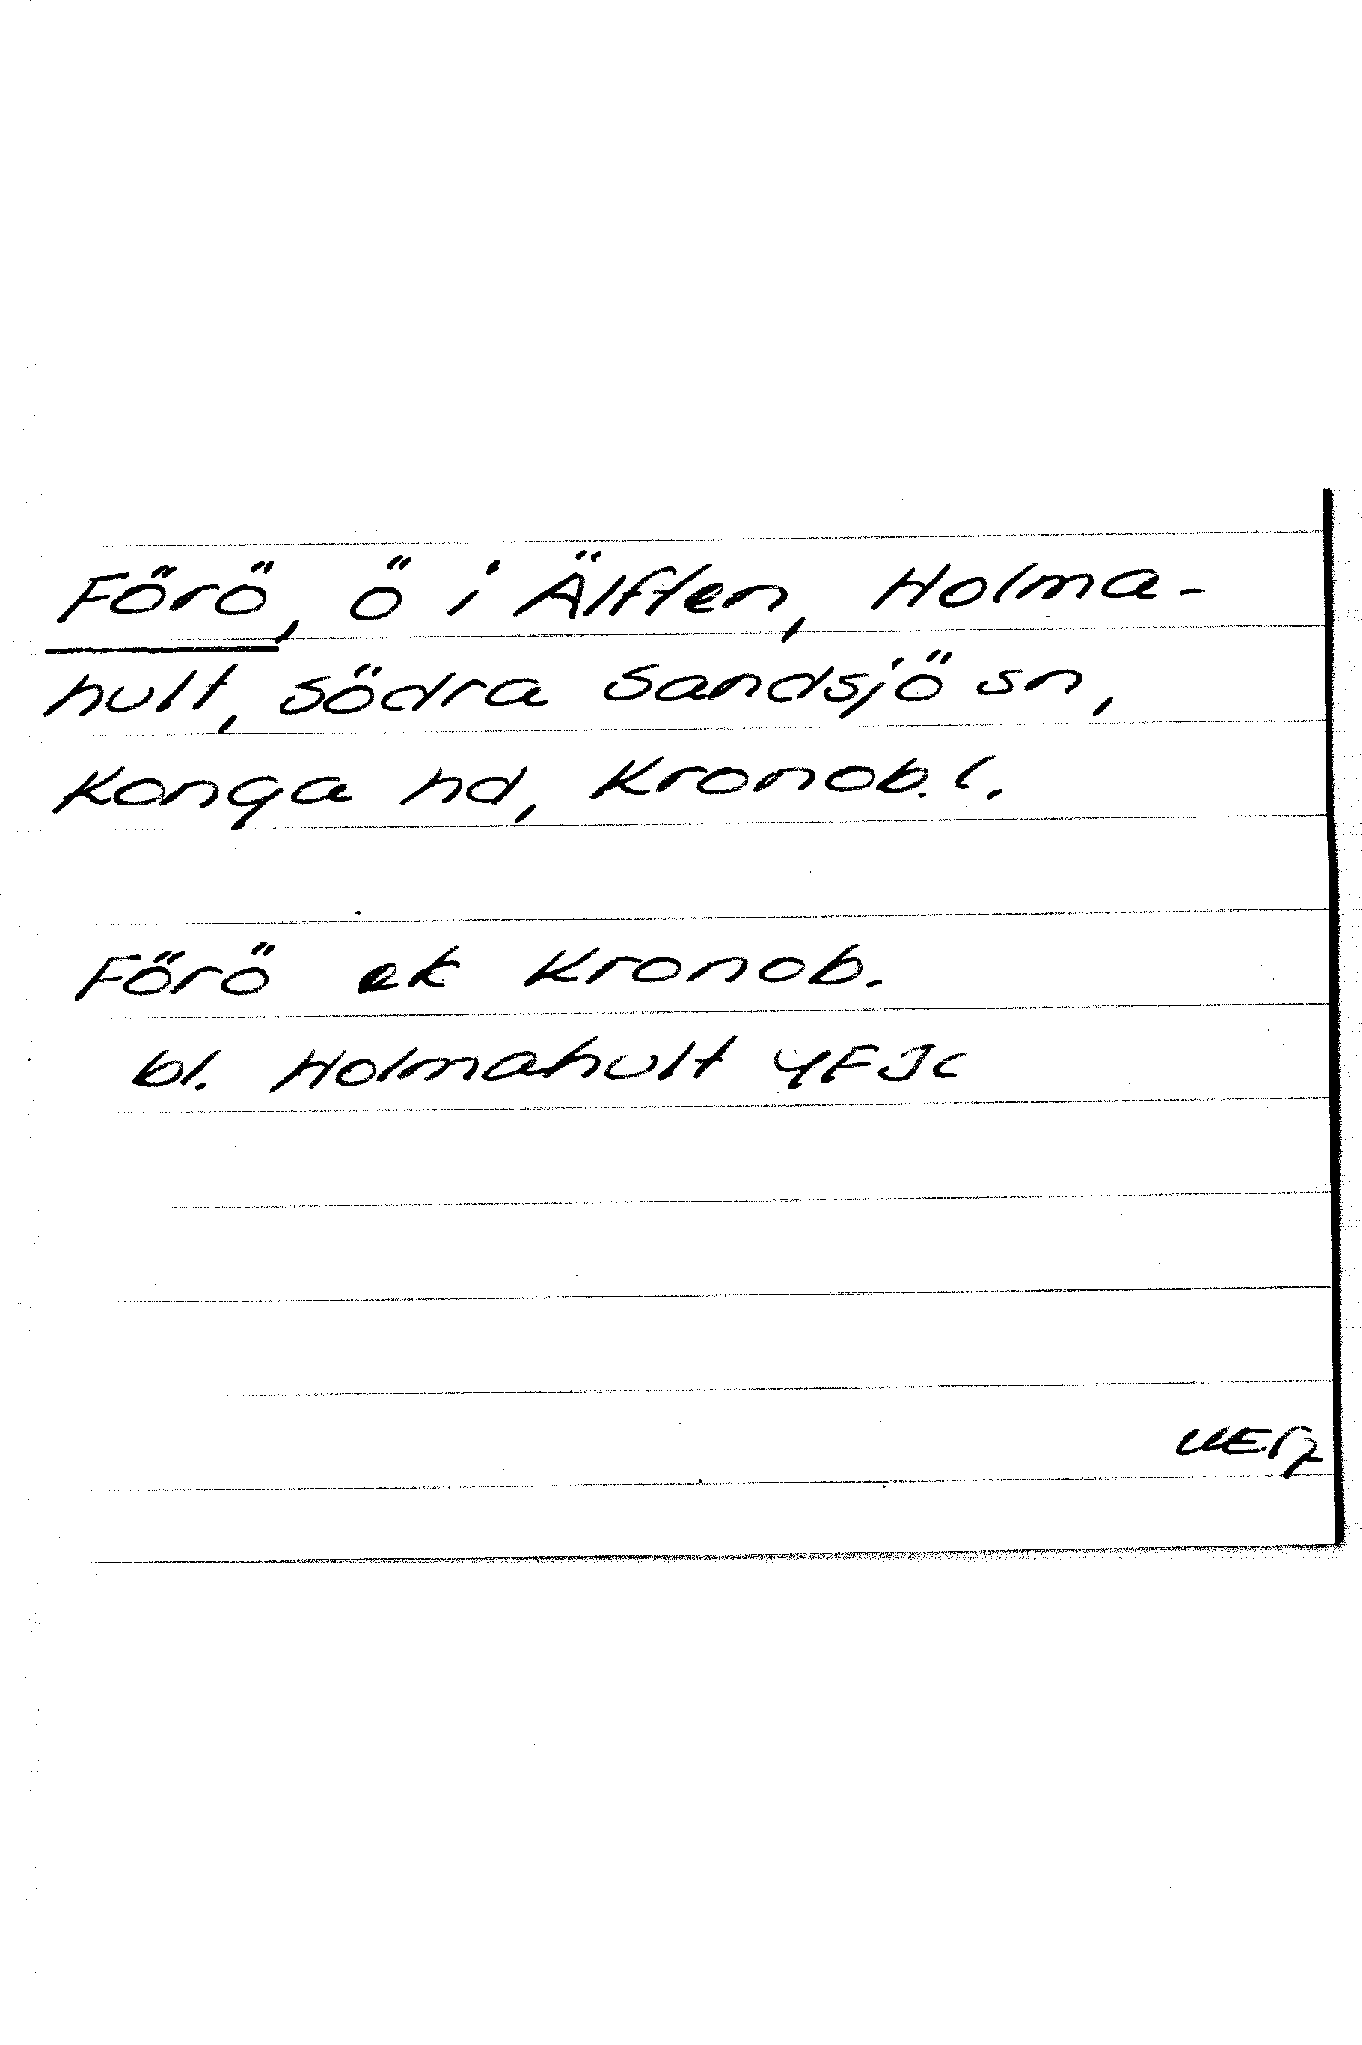 Förö, ö i Älften, Holma-
hult, Södra Sandsjö sn,
Konga hd, Kronob. l.
Förö ek Kronob.
bl. Holmahult 4F Jc